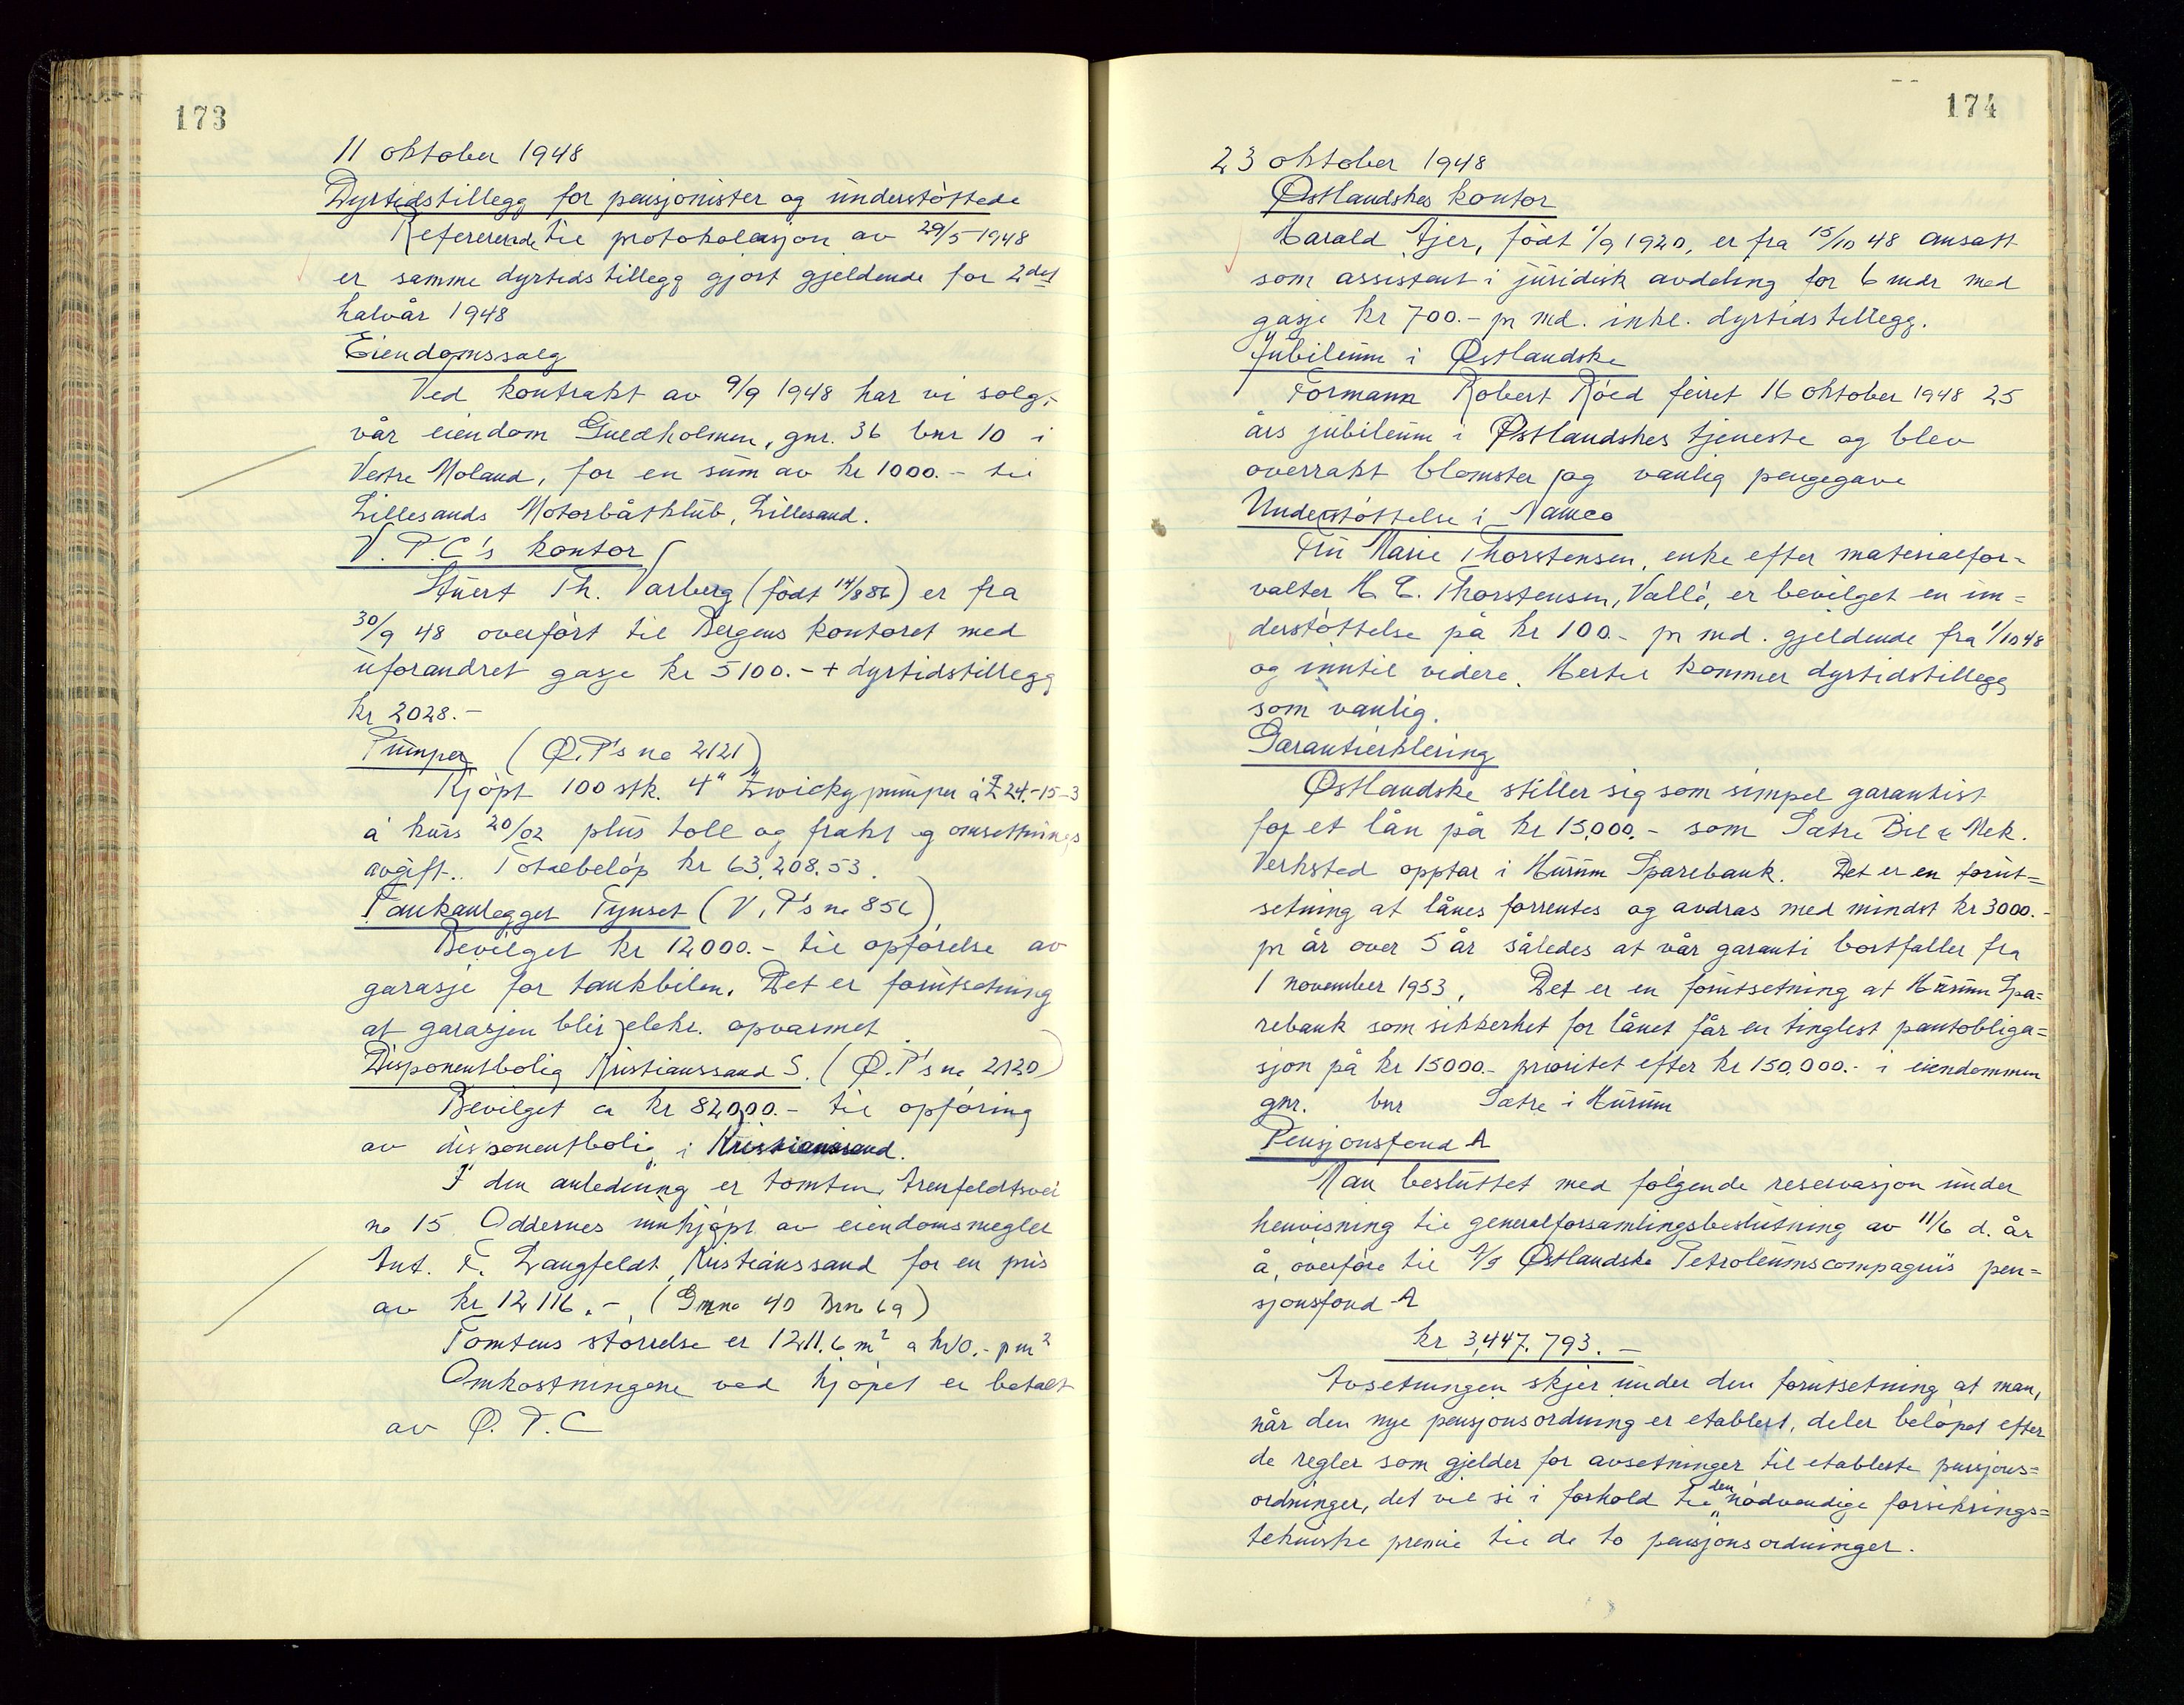 173
11 oktober 1948
Dyrtidstillegg for pensjonister og understøttede
Refererende til protokolasjon av 29/5 1948
er samme dyrtidstillegg gjort gjeldende for 2det
halvår 1948
Eiendomssalg
Ved kontrakt av 9/9 1948 har vi solgt
vår eiendom Guedholmen, gnr. 36 bnr 10 i
Vestre Moland, for en sum av kr 1000.- til
Lillesands Motorbåtklub, Lillesand.
V.P.C's kontor
Stuert Th. Varberg (født 14/8 86) er fra
30/9 48 overført til Bergens kontoret med
uforandret gasje kr 5100.- + dyrtidstillegg
kr 2028.-
Pumper (Ø.P's no 2121)
Kjøpt 100 stk. 4" Zwicky pumper à £ 24.-15-3
à kurs 20/02 plus toll og frakt og omsetnings
avgift.. Totalbeløp kr 63.208.53.
Tankanlegget Tynset (V.P's no 856)
Bevilget kr 12000.- til opførelse av
garasje for tankbilen. Det er forutsetning
at garasjen blir elektr. opvarmet
Disponentbolig Kristianssand S. (Ø.P's no 2120)
Bevilget ca kr 82000.- til opføring
av disponentbolig i Kristianssand.
I den anledning er tomten Arenfeldtsvei
no 15 Oddernes innkjøpt av eiendomsmegler
Ant. F. Langfeldt, Kristianssand for en pris
av kr 12116.-, (Grno 40 Brno 69)
Tomtens størrelse er 1211.6 m² a kr 10.- p m²
Omkostningene ved kjøpet er betalt
av Ø.P.C
174
23 oktober 1948
Østlandskes kontor
Harald Ajer, født 1/9 1920, er fra 15/10 48 ansatt
som assistent i juridisk avdeling for 6 mdr med
gasje kr 700.- pr md. inkl. dyrtidstillegg.
Jubileum i Østlandske
Formann Robert Róed feiret 16 oktober 1948 25
års jubileum i Østlandskes tjeneste og blev
overrakt blomster og vanlig pengegave
Understøttelse i Namco
Fru Marie Thorstensen, enke efter materialfor-
valter H E. Thorstensen, Vallø, er bevilget en un=
derstøttelse på kr 100.- pr md. gjeldende fra 1/10 48
og inntil videre. Hertil kommer dyrtidstillegg
som vanlig.
Garantierklering
Østlandske stiller sig som simpel garantist
for et lån på kr 15.000.- som Sætre Bil & Mek.
Verksted opptar i Hurum Sparebank. Det er en forut=
setning at lånes forrentes og avdras med mindst kr 3000.-
pr år over 5 år således at vår garanti bortfaller fra
1 november 1953. Det er en forutsetning at Hurum Spa=
rebank som sikkerhet for lånet får en tinglest pantobliga=
sjon på kr 15000.- prioritet efter kr 150.000.- i eiendommen
gnr. bnr Sætre i Hurum
Pensjonsfond A
Man besluttet med følgende reservasjon under
henvisning til generalforsamlingsbeslutning av 11/6 d. år
å overføre til A/S Østlandske Petroleumscompagnis pen=
sjonsfond A
kr 3,447.793.-
Avsetningen skjer under den forutsetning at man,
når den nye pensjonsordning er etablert, deler beløpet efter
de regler som gjelder for avsetninger til etablerte pensjons=
ordninger, det vil si i forhold til den nødvendige forsikrings=
tekniske premie til de to pensjonsordninger.